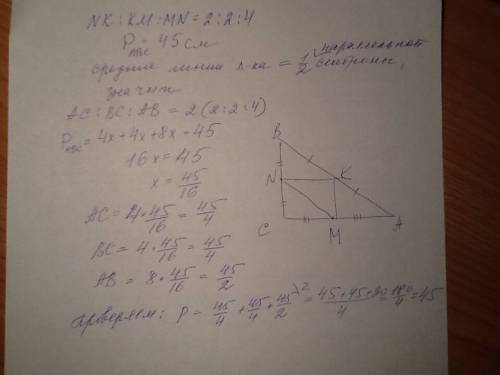 NK : KM : MN = 2 : 2 : 4
P = 45 см
средние линии = 1/2 параллельной
стороны,
значит
AC : BC : AB = 2 (2 : 2 : 4)
P = 4x + 4x + 8x = 45
16x = 45
x = 45/16
AC = 4 · 45/16 = 45/4
BC = 4 · 45/16 = 45/4
AB = 8 · 45/16 = 45/2
проверяем: P = 45/4 + 45/4 + 45/2 = (45 + 45 + 90)/4 = 180/4 = 45
B
N
K
C
M
A